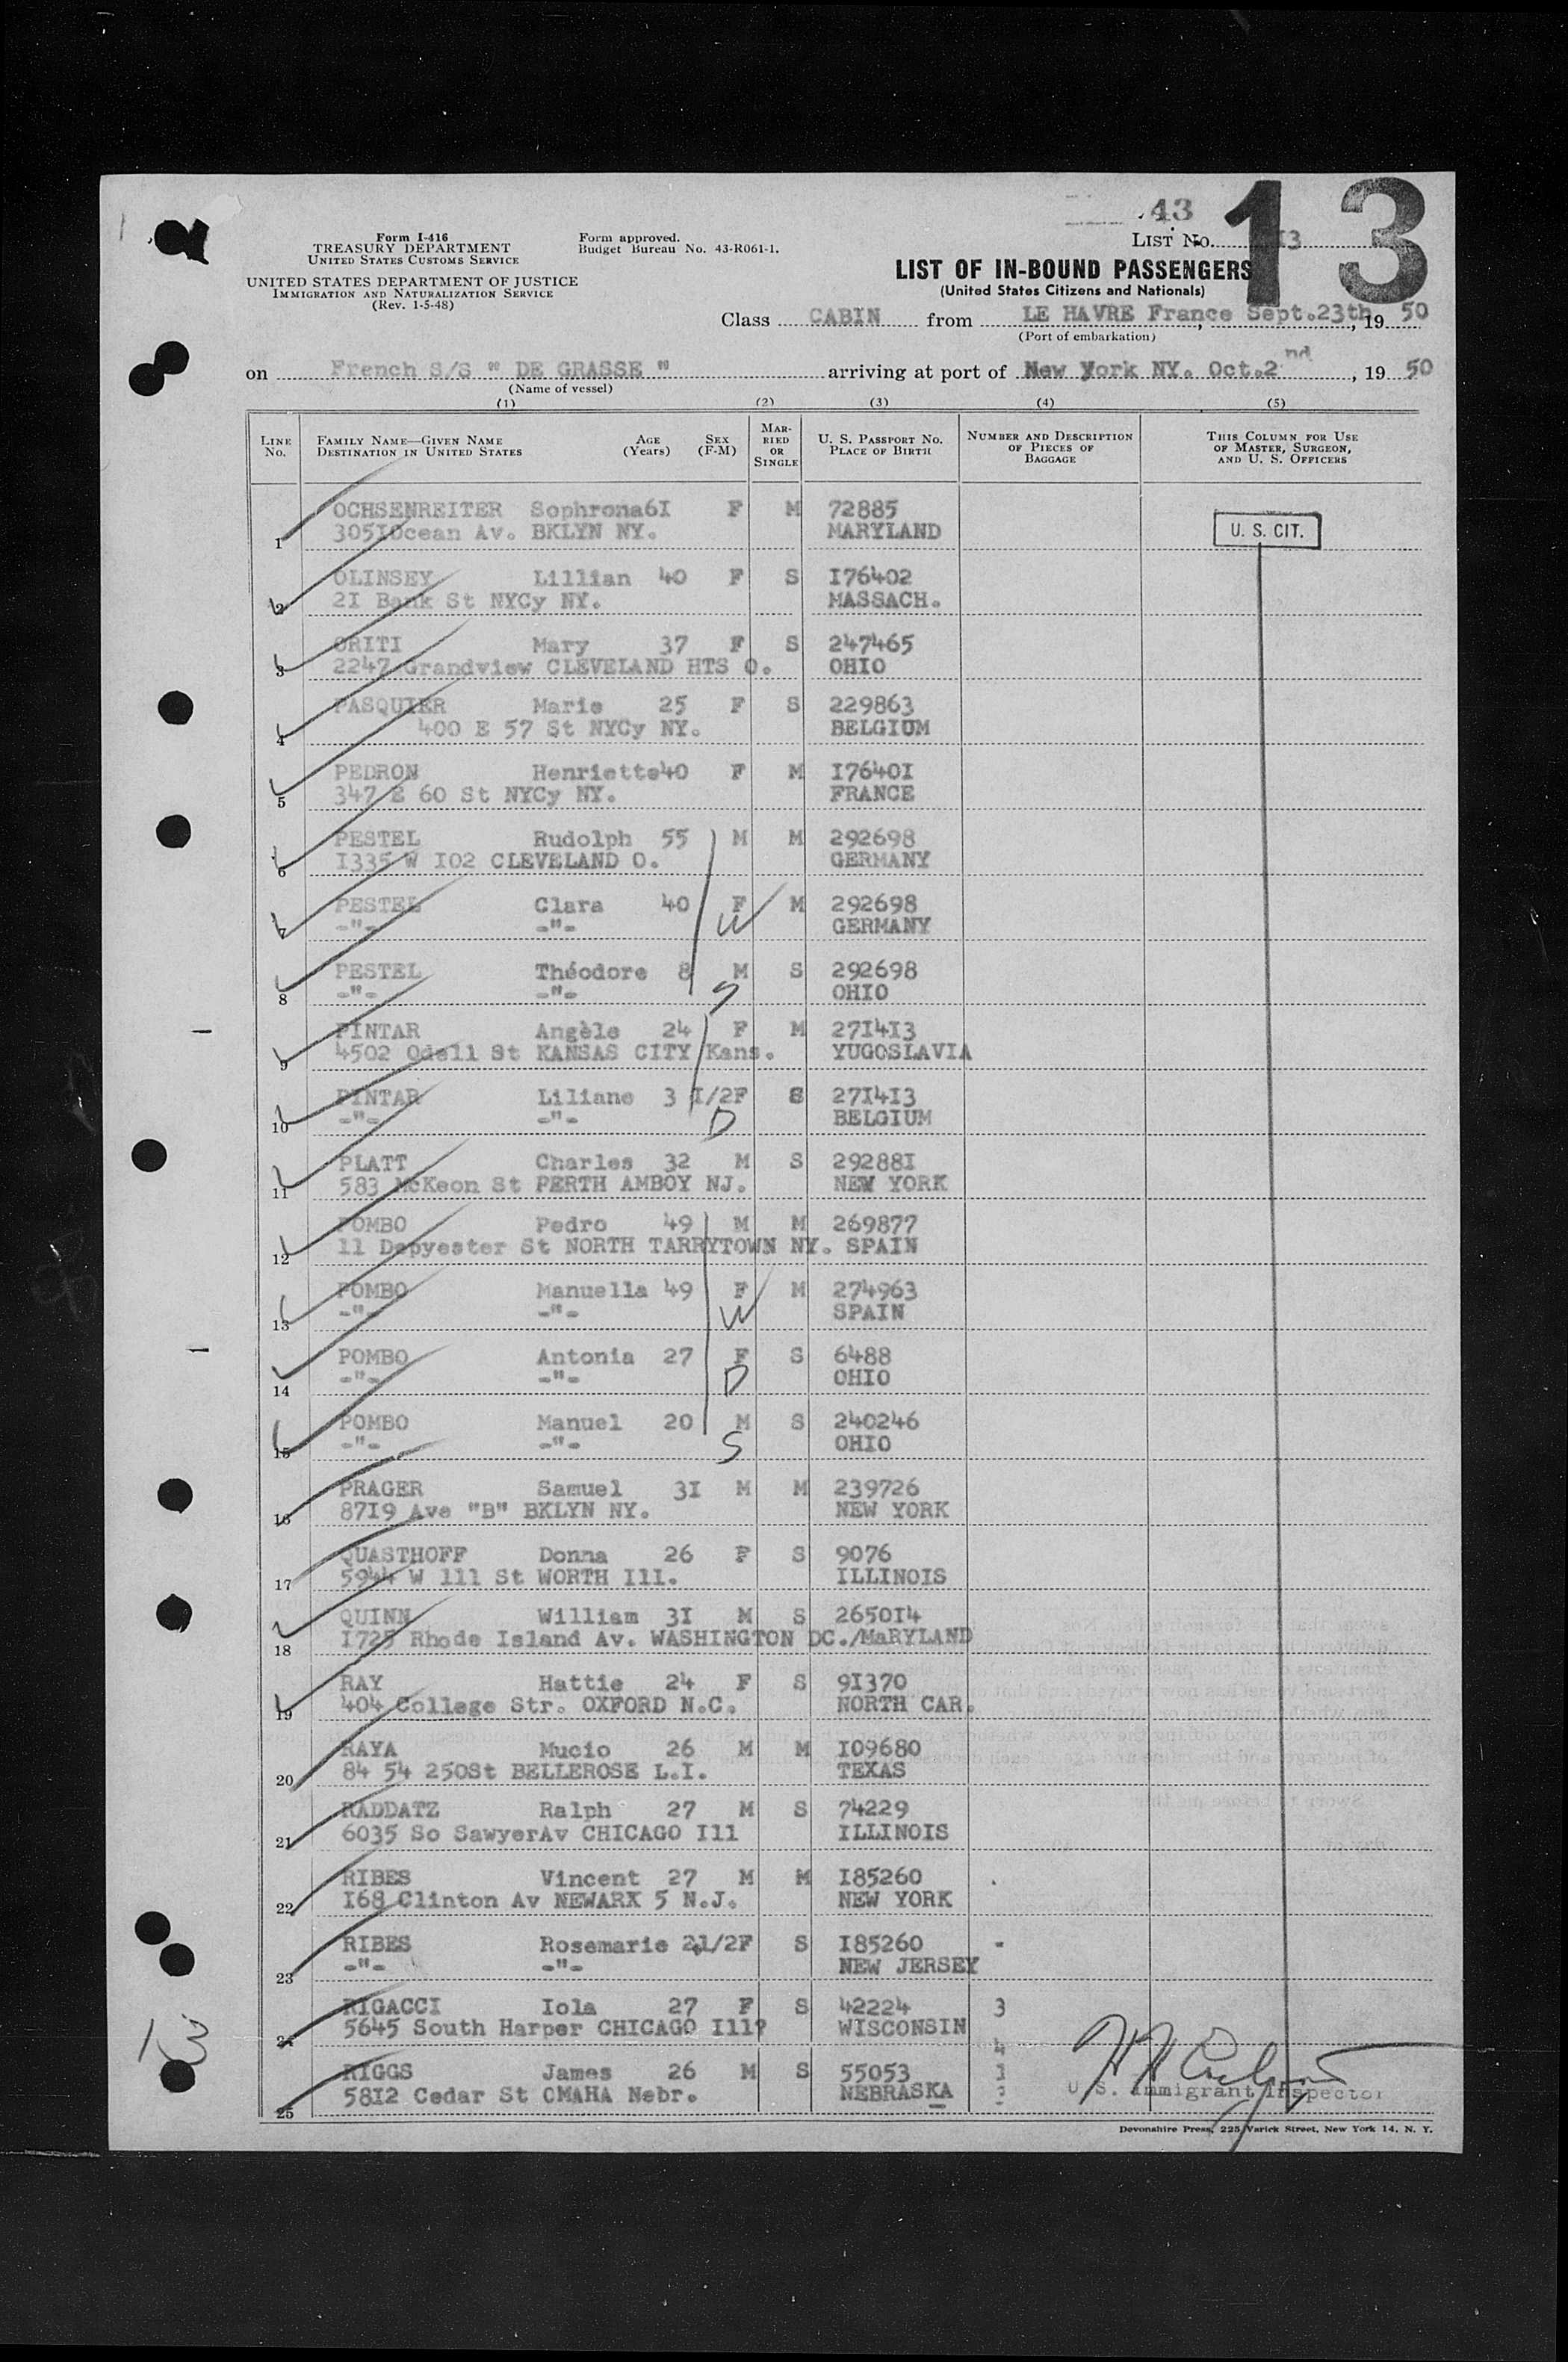 43
13
Form I-416
TREASURY DEPARTMENT
UNITED STATES CUSTOMS SERVICE
UNITED STATES DEPARTMENT OF JUSTICE
IMMIGRATION AND NATURALIZATION SERVICE
(Rev. 1-5-48)
Form approved.
Budget Bureau No. 43-R061-1.
LIST NO. 13
LIST OF IN-BOUND PASSENGERS
(United States Citizens and Nationals)
Class CABIN from LE HAVRE France, Sept.23th, 19 50
(Port of embarkation)
on French S/S " DE GRASSE " arriving at port of New York NY. Oct.2nd, 19 50
(Name of vessel)
(1) (2) (3) (4) (5)
LINE NO. FAMILY NAME—GIVEN NAME DESTINATION IN UNITED STATES AGE (Years) SEX (F-M) MARRIED OR SINGLE U. S. PASSPORT NO. PLACE OF BIRTH NUMBER AND DESCRIPTION OF PIECES OF BAGGAGE THIS COLUMN FOR USE OF MASTER, SURGEON, AND U. S. OFFICERS
OCHSENREITER Sophrona6I F M 72885
1 305IOcean Av. BKLYN NY. MARYLAND
U. S. CIT.
OLINSEY Lillian 40 F S I76402
2 2I Bank St NYCy NY. MASSACH.
ORITI Mary 37 F S 247465
3 2247 Grandview CLEVELAND HTS O. OHIO
PASQUIER Marie 25 F S 229863
4 400 E 57 St NYCy NY. BELGIUM
PEDRON Henriette40 F M I7640I
5 347 E 60 St NYCy NY. FRANCE
PESTEL Rudolph 55 M M 292698
6 I335 W I02 CLEVELAND O. GERMANY
PESTEL Clara 40 F M 292698
7 -"- -"- W GERMANY
PESTEL Théodore 8 M S 292698
8 -"- -"- S OHIO
PINTAR Angèle 24 F M 27I4I3
9 4502 Odell St KANSAS CITY Kans. YUGOSLAVIA
PINTAR Liliane 3 I/2F S 27I4I3
10 -"- -"- D BELGIUM
PLATT Charles 32 M S 29288I
11 583 McKeon St PERTH AMBOY NJ. NEW YORK
POMBO Pedro 49 M M 269877
12 11 Depyester St NORTH TARRYTOWN NY. SPAIN
POMBO Manuella 49 F M 274963
13 -"- -"- W SPAIN
POMBO Antonia 27 F S 6488
14 -"- -"- D OHIO
POMBO Manuel 20 M S 240246
15 -"- -"- S OHIO
PRAGER Samuel 3I M M 239726
16 87I9 Ave "B" BKLYN NY. NEW YORK
QUASTHOFF Donna 26 F S 9076
17 5944 W 111 St WORTH Ill. ILLINOIS
QUINN William 3I M S 2650I4
18 I725 Rhode Island Av. WASHINGTON DC./MaRYLAND
RAY Hattie 24 F S 9I370
19 404 College Str. OXFORD N.C. NORTH CAR.
RAYA Mucio 26 M M I09680
20 84 54 250St BELLEROSE L.I. TEXAS
RADDATZ Ralph 27 M S 74229
21 6035 So SawyerAv CHICAGO Ill ILLINOIS
RIBES Vincent 27 M M I85260
22 I68 Clinton Av NEWARK 5 N.J. NEW YORK
RIBES Rosemarie 21/2F S I85260
23 -"- -"- NEW JERSEY
RIGACCI Iola 27 F S 42224 3
24 5645 South Harper CHICAGO Ill? WISCONSIN
4
RIGGS James 26 M S 55053
25 58I2 Cedar St OMAHA Nebr. NEBRASKA
U.S. Immigrant Inspector
Devonshire Press, 225 Varick Street, New York 14, N. Y.